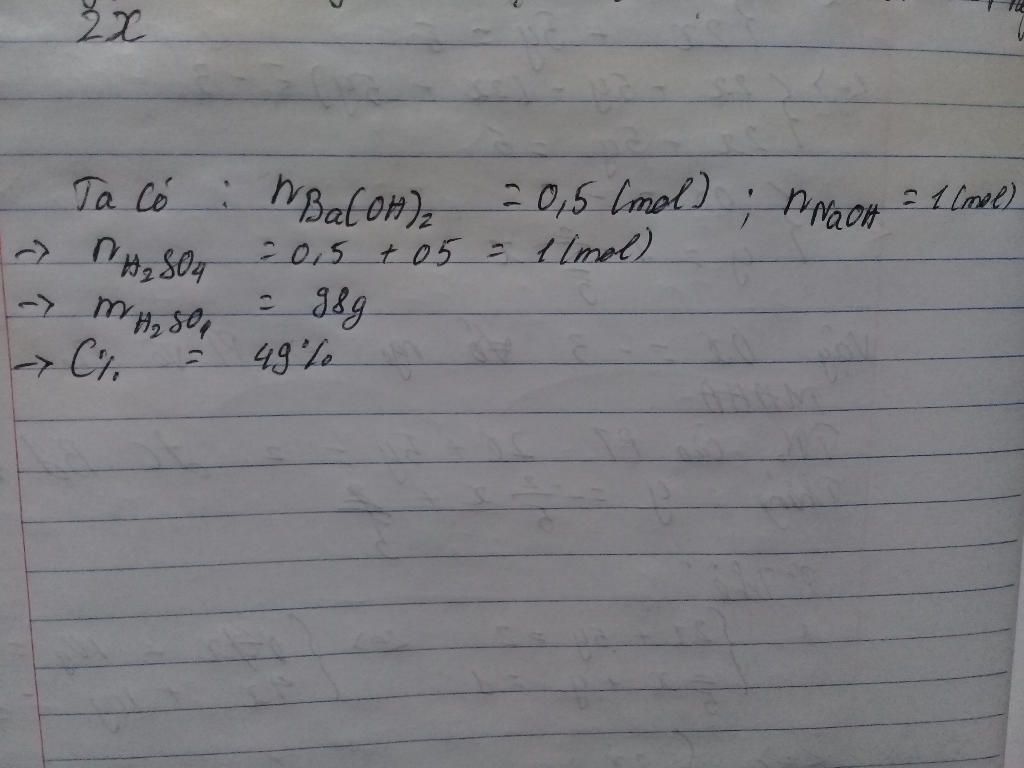 2x
Ta có : n Ba(OH)₂ = 0,5 (mol) ; n NaOH = 1 (mol)
→ n H₂SO₄ = 0,5 + 05 = 1 (mol)
→ m H₂SO₄ = 98g
→ C% = 49%